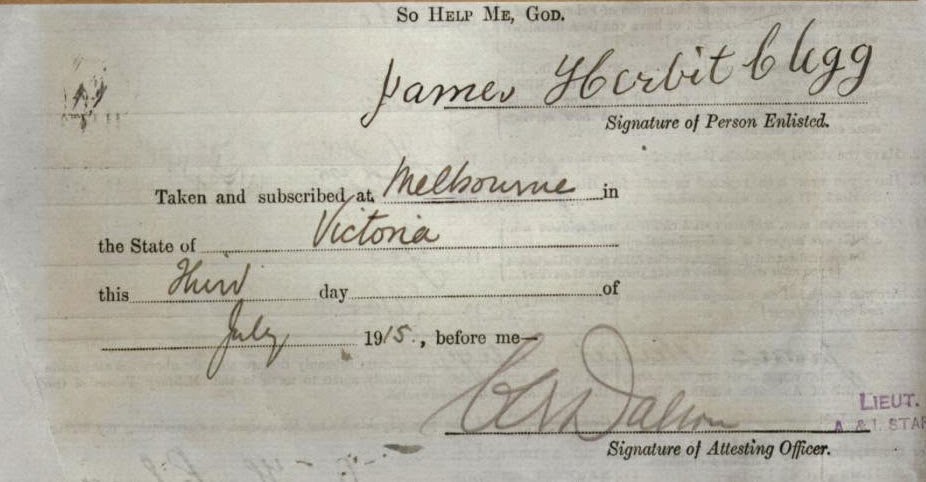 So Help Me, God.
James Herbit Clegg
Signature of Person Enlisted.
Taken and subscribed at Melbourne in
the State of Victoria
this Third day of
July 1915., before me—
Dalson
LIEUT.
A. & I. STAF
Signature of Attesting Officer.